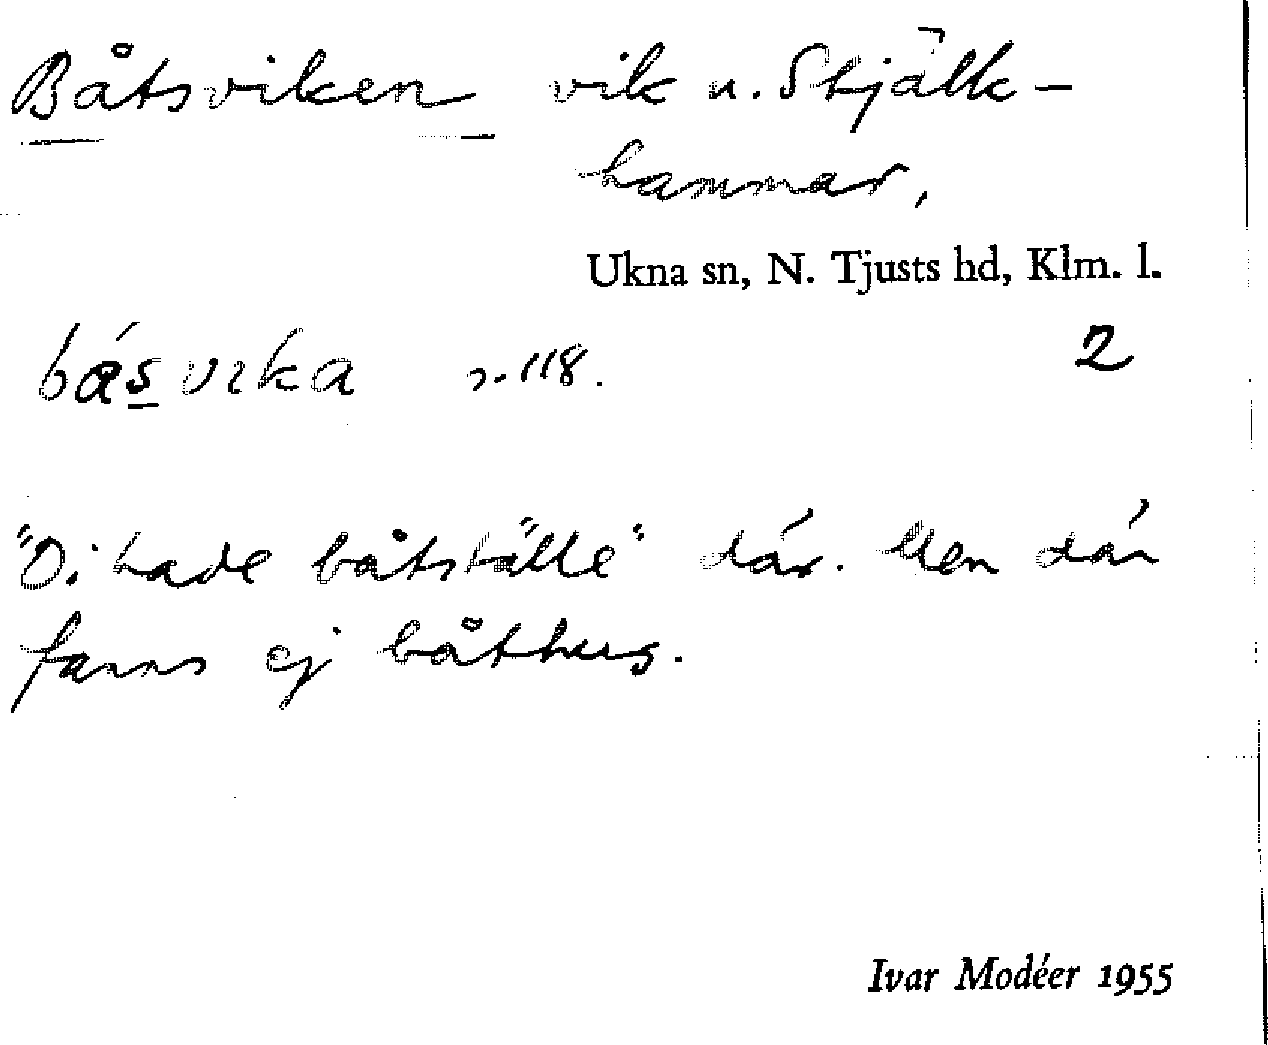 Båtsviken vik u. Skjälk-
hammar,
Ukna sn, N. Tjusts hd, Klm. l.
básvika s. 118. 2
"Di hade båtställe" där. Men där
fanns ej båthus.
Ivar Modéer 1955